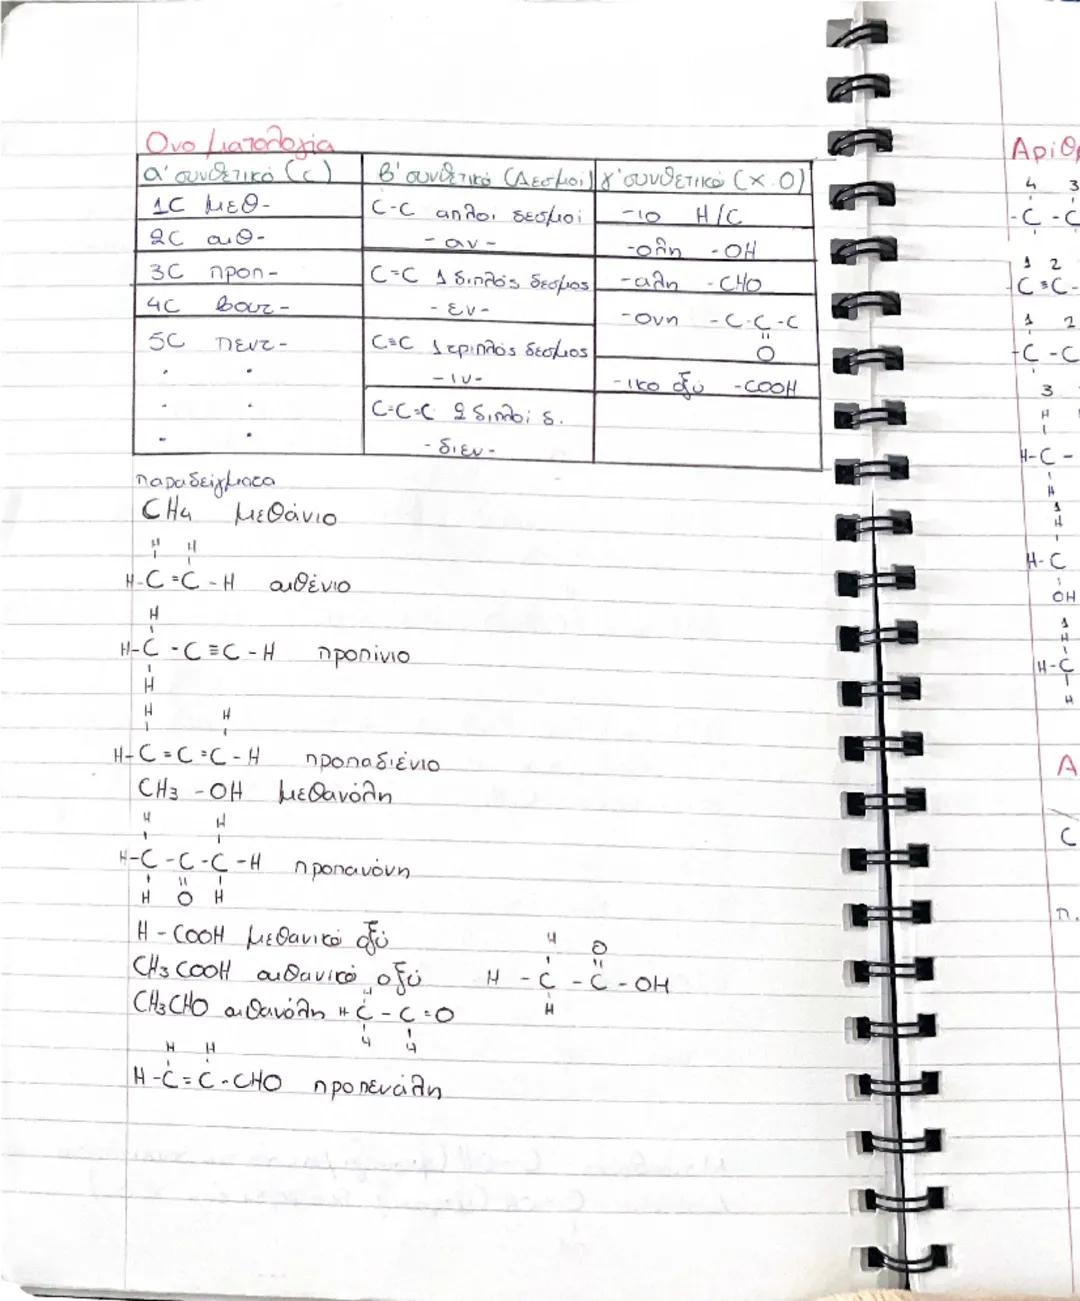 Ονοματολογία
α' συνθετικό (C) β' συνθετικό (Δεσμοί) γ' συνθετικό (Χ.Ο)
1C μεθ- C-C απλοί δεσμοί -ιο Η/C
2C αιθ- -αν- -ολη -OH
3C προπ- C=C 1 διπλός δεσμος -αλη -CHO
4C βουτ- -εν- -ονη -C-C-C
5C πεντ- C≡C 1 τριπλός δεσμος O
. . -ιν- -ικο οξύ -COOH
. . C=C=C 2 διπλοί δ.
. . -διεν-
παραδείγματα
CH4 μεθάνιο
H H
H-C=C-H αιθένιο
H
H-C-C≡C-H προπίνιο
H
H H
H-C=C=C-H προπαδιένιο
CH3-OH μεθανόλη
H H
H-C-C-C-H προπανόνη
H O H
H-COOH μεθανικό οξύ
H O
CH3COOH αιθανικό οξύ H-C-C-OH
H
H
CH3CHO αιθανόλη H C-C=O
H H
H H
H-C=C-CHO προπενάλη
Αριθ
4 3
-C-C
1 2
C≡C-
1 2
-C-C
3
H
H-C-
H
1
H
H-C
OH
1
H
H-C
H
Α
C
π.